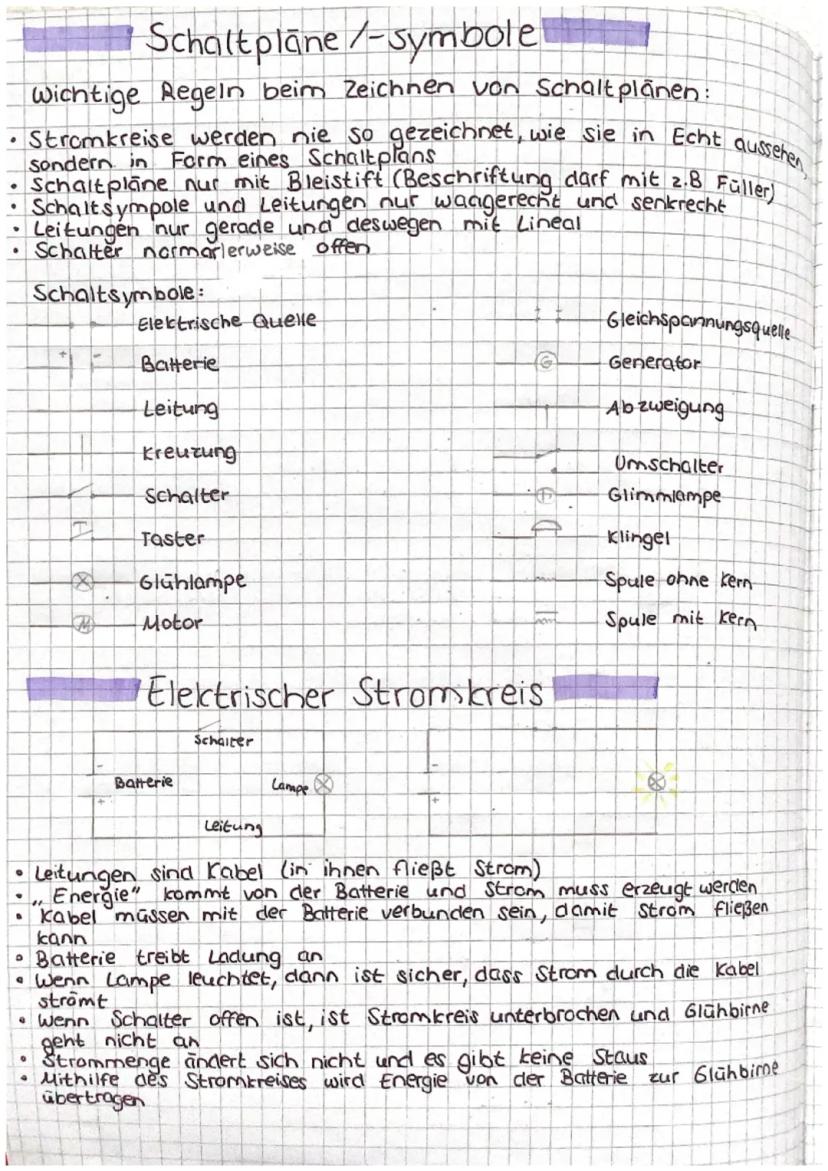 Schaltpläne /-symbole
Wichtige Regeln beim Zeichnen von Schaltplänen:
• Stromkreise werden nie so gezeichnet, wie sie in Echt aussehen,
sondern in Form eines Schaltplans
• Schaltpläne nur mit Bleistift (Beschriftung darf mit z.B Füller)
• Schaltsympole und Leitungen nur waagerecht und senkrecht
• Leitungen nur gerade und deswegen mit Lineal
• Schalter normarlerweise offen
Schaltsymbole:
Elektrische Quelle
Gleichspannungsquelle
+ - Batterie
G Generator
Leitung
Abzweigung
Kreuzung
Umschalter
Schalter
Glimmlampe
Taster
Klingel
Glühlampe
Spule ohne Kern
M Motor
Spule mit Kern
Elektrischer Stromkreis
Schalter
-
-
Batterie
Lampe
+
+
Leitung
• Leitungen sind Kabel (in ihnen fließt Strom)
• „Energie" kommt von der Batterie und Strom muss erzeugt werden
• Kabel müssen mit der Batterie verbunden sein, damit Strom fließen
kann
• Batterie treibt Ladung an
• Wenn Lampe leuchtet, dann ist sicher, dass Strom durch die Kabel
strömt
• Wenn Schalter offen ist, ist Stromkreis unterbrochen und Glühbirne
geht nicht an
• Strommenge ändert sich nicht und es gibt keine Staus
• Mithilfe des Stromkreises wird Energie von der Batterie zur Glühbirne
übertragen